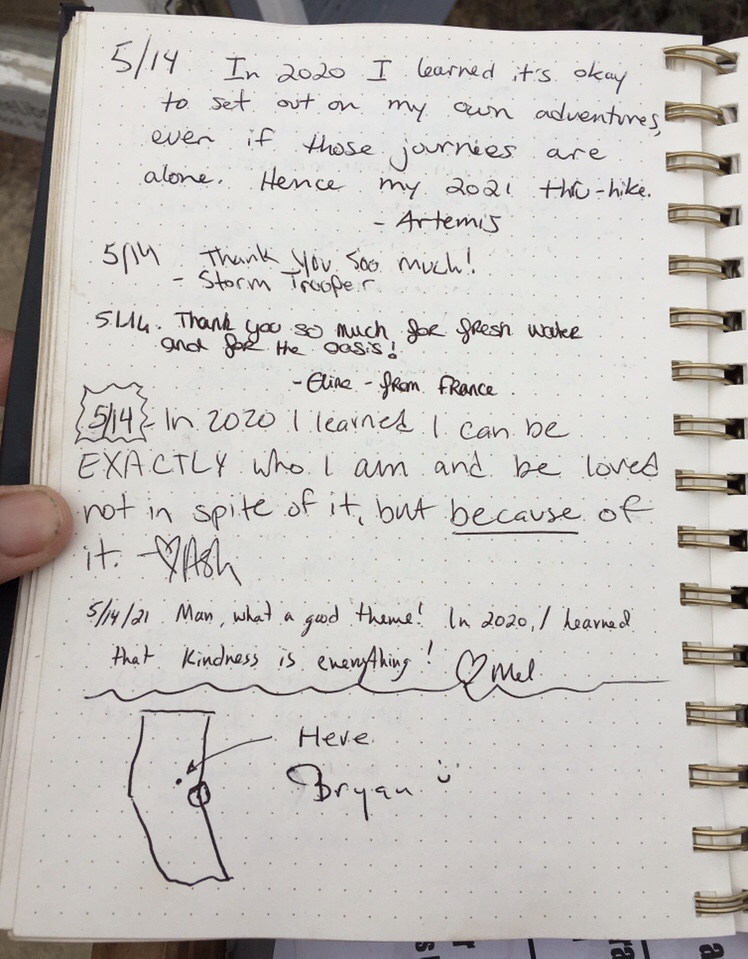 5/14 In 2020 I learned it's okay
to set out on my own adventures,
even if those journies are
alone. Hence my 2021 thru-hike.
- Artemis
5/14 Thank you soo much!
- Storm Trooper
5/14. Thank you so much for fresh water
and for the oasis!
- Eline - from France
5/14 - In 2020 I learned I can be
EXACTLY who I am and be loved
not in spite of it, but because of
it. -♡Ash
5/14/21 Man, what a good theme! In 2020, I learned
that kindness is everything! ♡Mel
Here
Bryan :)